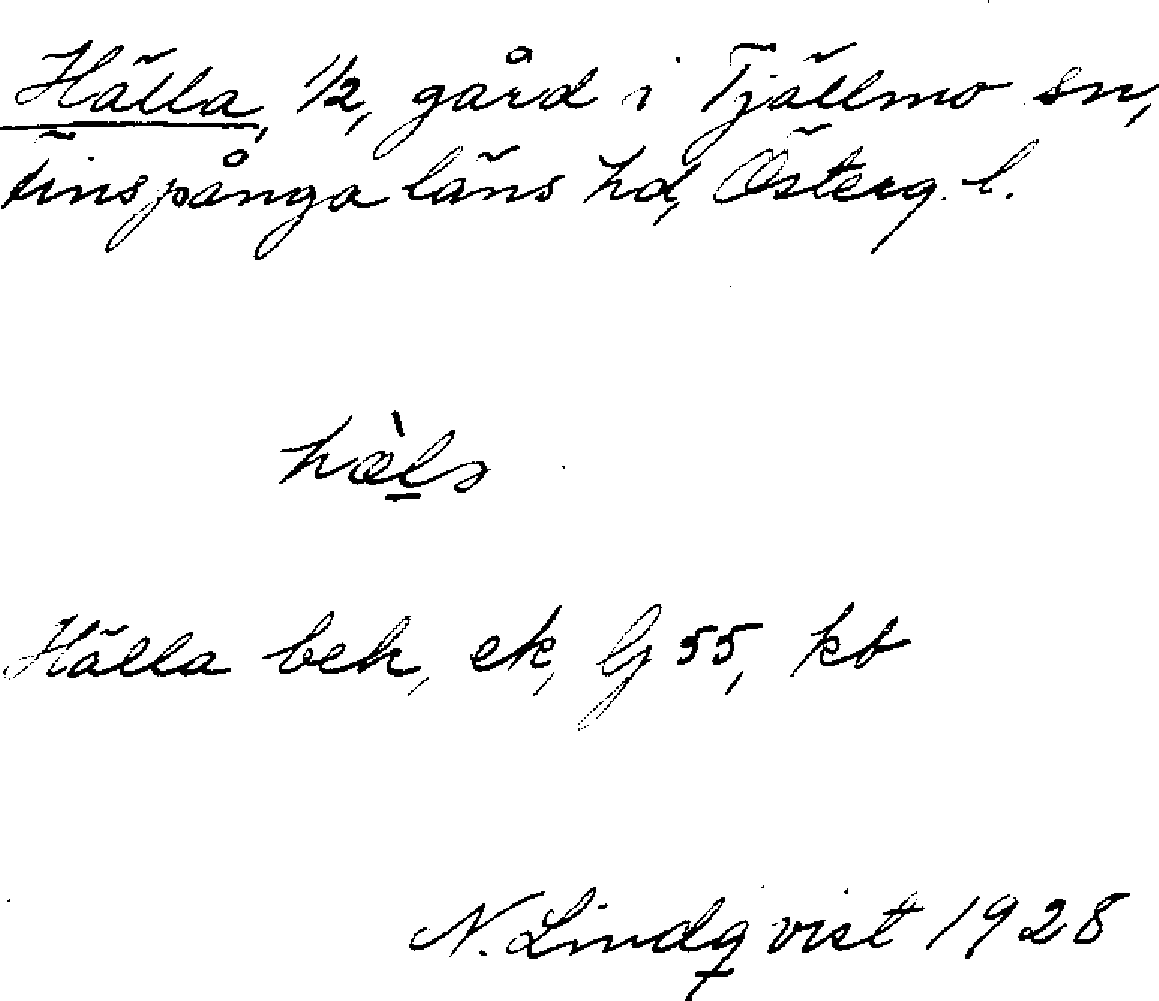 Hälla, 1/2, gård i Tjällmo sn,
Finspånga läns hd, Österg. l.
hæ̀l̲s
Hälla bek, ek, Gj 55, kb
N. Lindqvist 1928